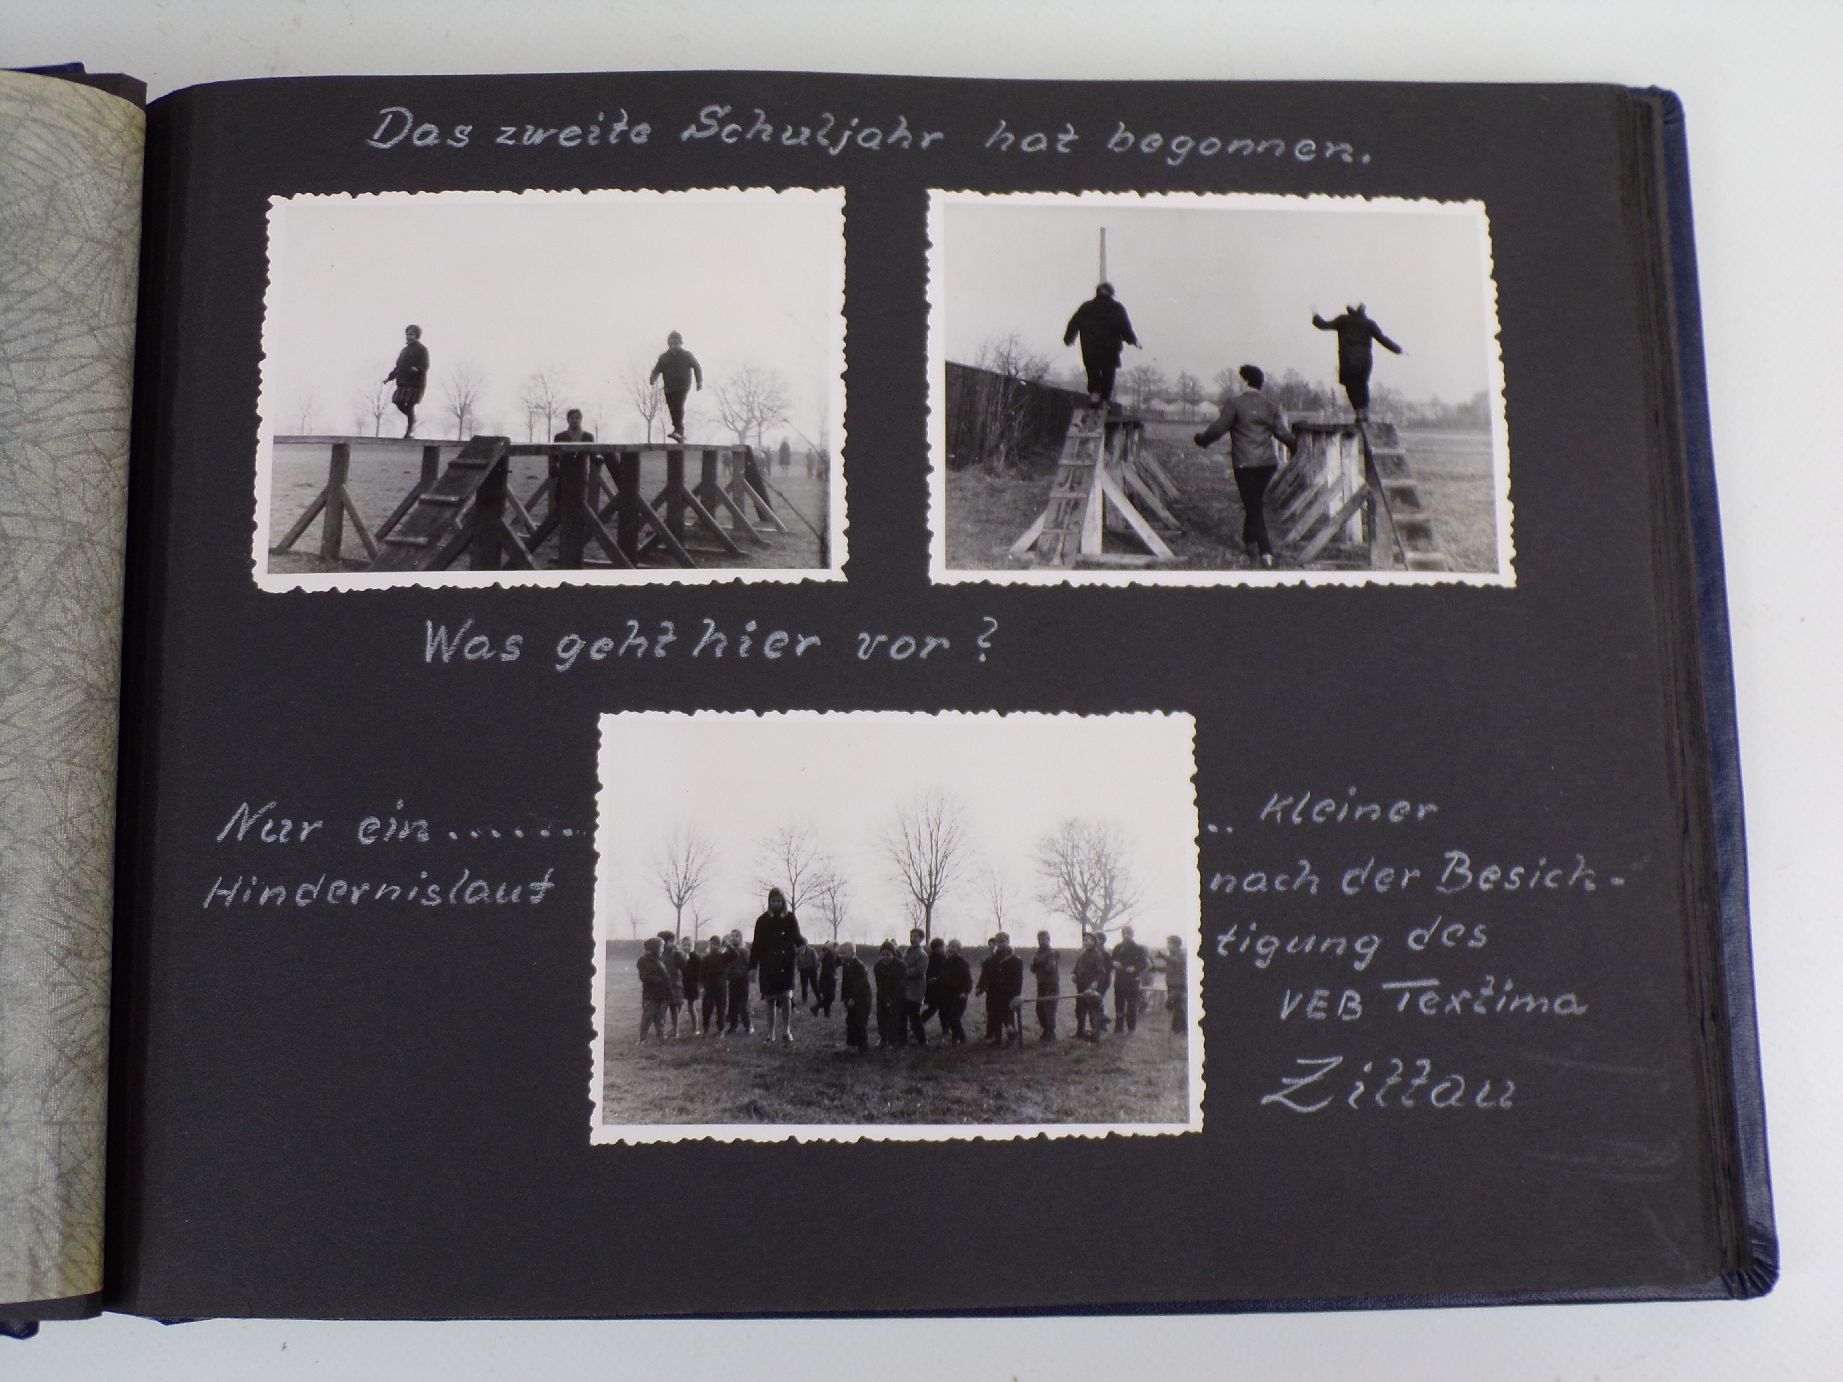 Das zweite Schuljahr hat begonnen.
Was geht hier vor?
Nur ein....... .. kleiner
Hindernislauf nach der Besich-
tigung des
VEB Textima
Zittau